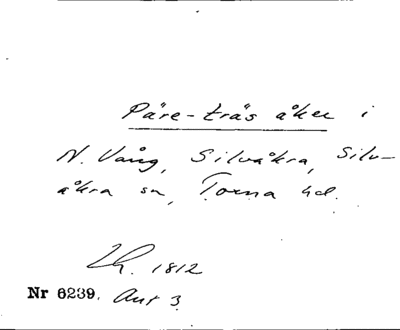 Päre-träs åker i
N. Vång, Silvåkra, Silv-
åkra sn, Torna hd.
Lh. 1812
Nr 6239. Akt 3